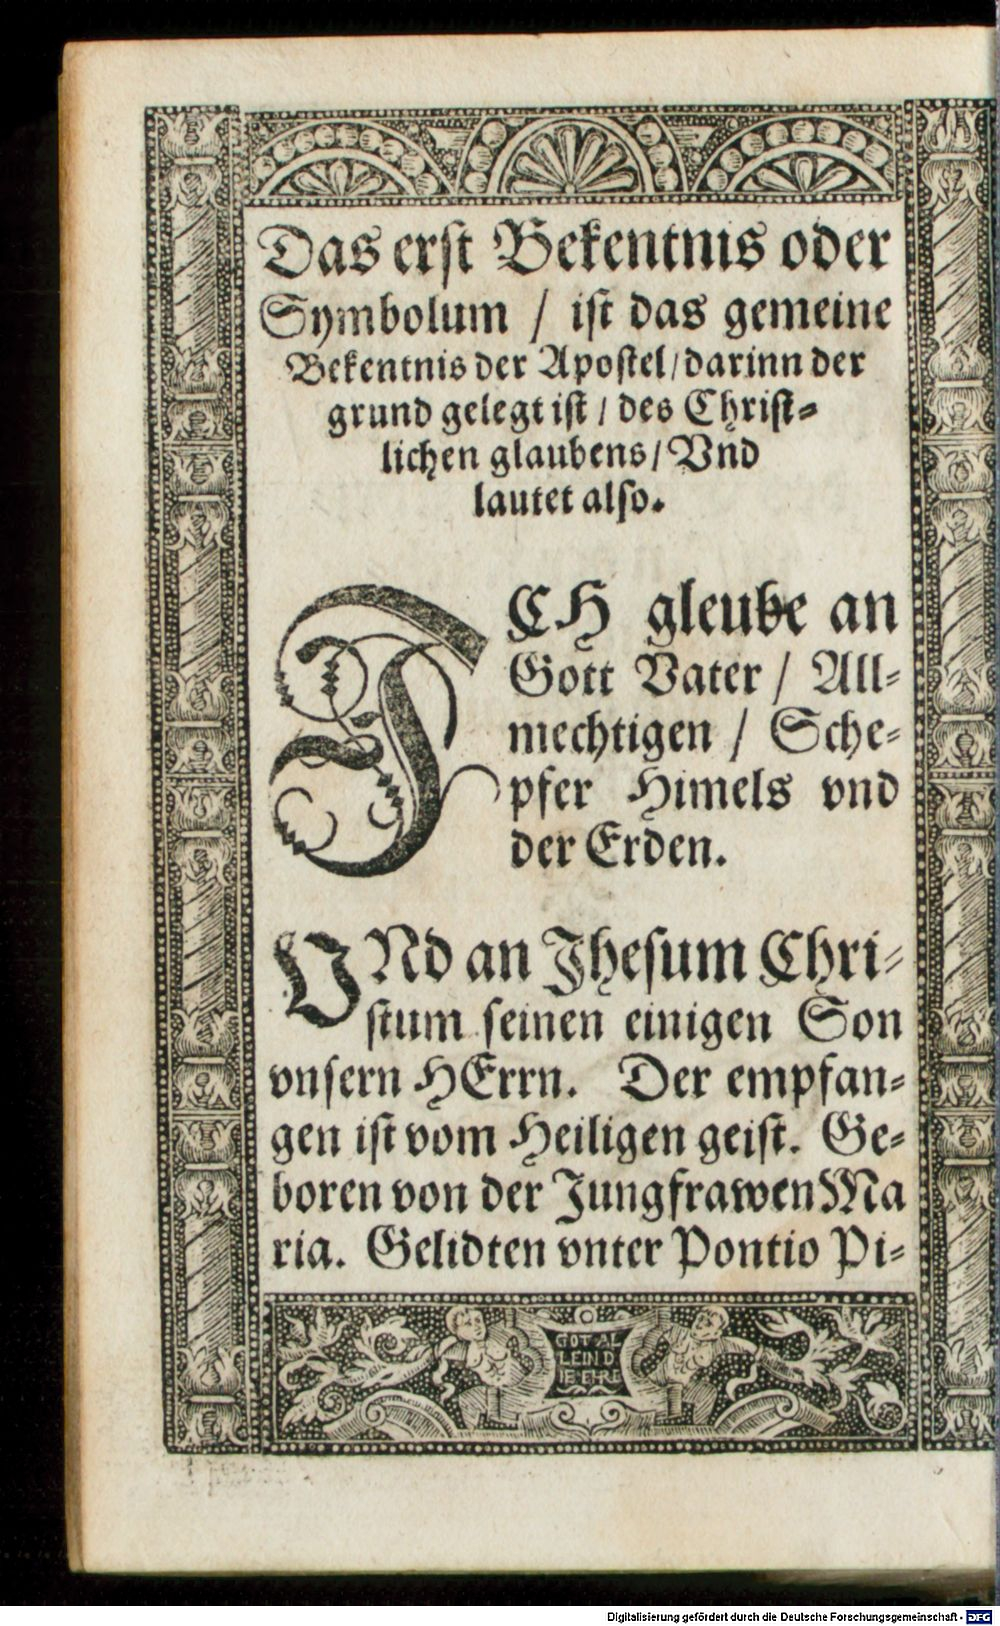 Das erst Bekentnis oder
Symbolum / ist das gemeine
Bekentnis der Apostel / darinn der
grund gelegt ist / des Christ-
lichen glaubens / Vnd
lautet also.
ICH gleube an
Gott Vater / All-
mechtigen / Sche-
pfer Himels vnd
der Erden.
VNd an Jhesum Chri-
stum seinen einigen Son
vnsern HErrn. Der empfan-
gen ist vom Heiligen geist. Ge-
boren von der Jungfrawen Ma
ria. Gelidten vnter Pontio Pi-
GOT AL
LEIN D
IE EHR
Digitalisierung gefördert durch die Deutsche Forschungsgemeinschaft - DFG